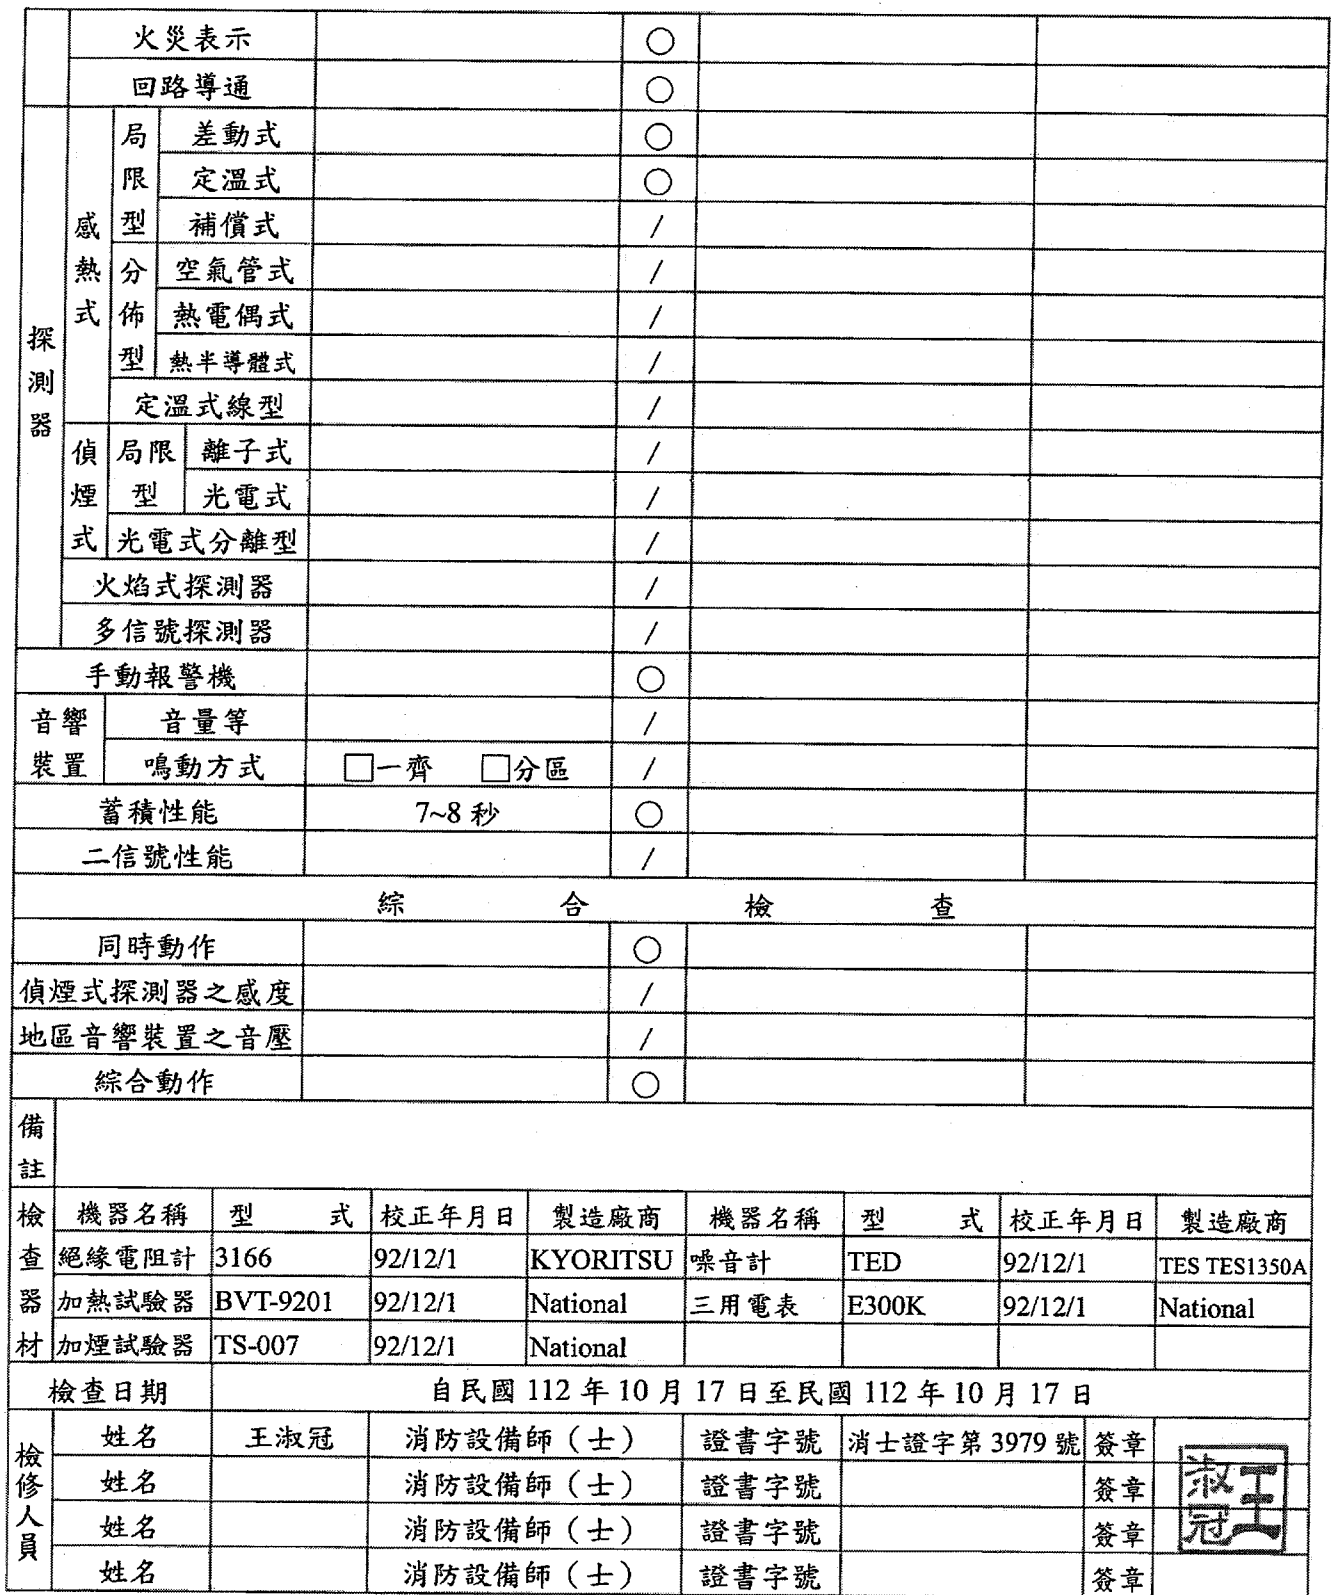 火災表示 ○
回路導通 ○
探測器 感熱式 局限型 差動式 ○
定溫式 ○
補償式 /
分佈型 空氣管式 /
熱電偶式 /
熱半導體式 /
定溫式線型 /
偵煙式 局限型 離子式 /
光電式 /
光電式分離型 /
火焰式探測器 /
多信號探測器 /
手動報警機 ○
音響裝置 音量等 /
鳴動方式 □一齊 □分區 /
蓄積性能 7~8 秒 ○
二信號性能 /
綜 合 檢 查
同時動作 ○
偵煙式探測器之感度 /
地區音響裝置之音壓 /
綜合動作 ○
備註
檢查器材 機器名稱 型 式 校正年月日 製造廠商 機器名稱 型 式 校正年月日 製造廠商
絕緣電阻計 3166 92/12/1 KYORITSU 噪音計 TED 92/12/1 TES TES1350A
加熱試驗器 BVT-9201 92/12/1 National 三用電表 E300K 92/12/1 National
加煙試驗器 TS-007 92/12/1 National
檢查日期 自民國 112 年 10 月 17 日至民國 112 年 10 月 17 日
檢修人員 姓名 王淑冠 消防設備師（士） 證書字號 消士證字第 3979 號 簽章
姓名 消防設備師（士） 證書字號 簽章
姓名 消防設備師（士） 證書字號 簽章
姓名 消防設備師（士） 證書字號 簽章
王淑冠